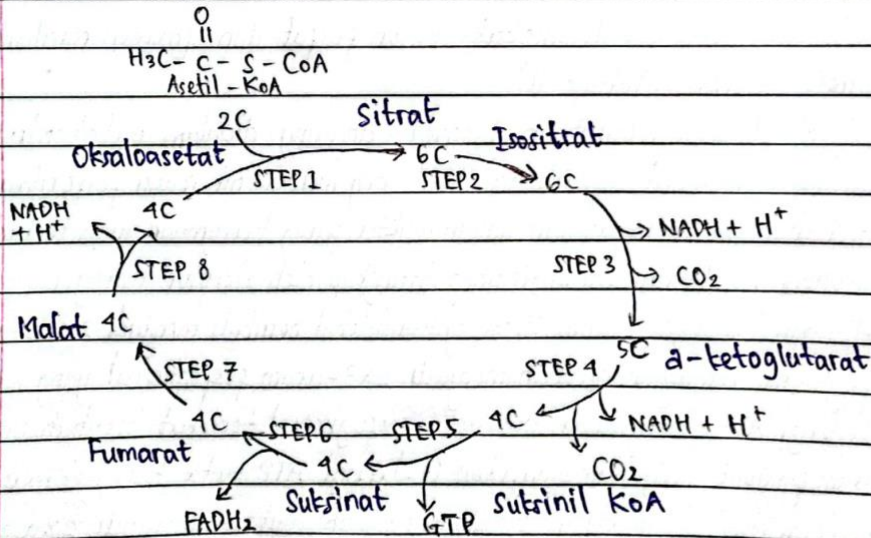 O
||
H₃C - C - S - CoA
Asetil - KoA
2C
Sitrat
Oksaloasetat
6C
Isositrat
STEP 1
STEP 2
6C
NADH
+ H⁺
4C
NADH + H⁺
STEP 8
STEP 3
CO₂
Malat 4C
5C a-ketoglutarat
STEP 7
STEP 4
4C
STEP 6
STEP 5
4C
NADH + H⁺
Fumarat
4C
CO₂
Suksinat
Suksinil KoA
FADH₂
GTP